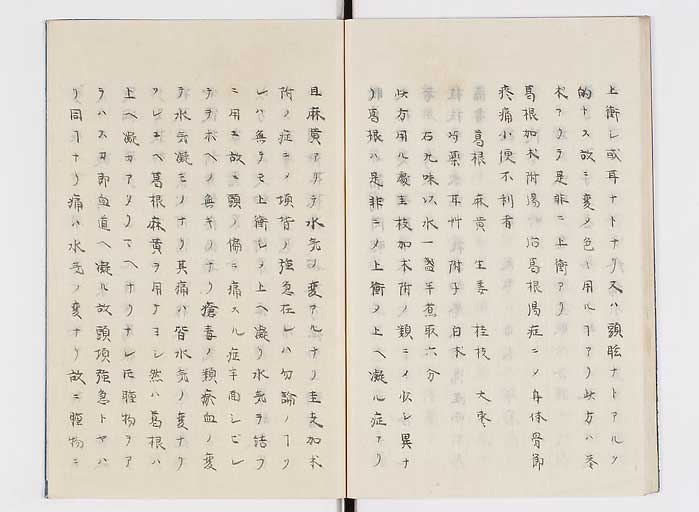 上衝シ或耳ナトナリ又ハ頭眩ナトアルヲ
的トス故ニ変ノ色々用ルヿアリ此方ハ苓
术アリテ是非ニ上衝アリ
葛根加术附湯 治葛根湯症ニメ身体骨節
疼痛小便不利者
葛根 麻黄 生姜 桂枝 大棗
芍薬 耳艸 附子 白术
右九味以水一盞半煮取六分
此方用ル處桂枝加术附ノ類ニメ少シ異ナ
リ葛根ハ是非ニメ上衝メ上ヘ凝ル症アリ
且麻黄アリテ水気ノ変アルナリ桂支加术
附ノ症ニメ項背ノ強急在レハ勿論ノヿク
レハ無テモ上衝シメ上ヘ凝リ水気ヲ詰フ
ニ用ユ故ニ頭ノ偏ニ痛スル症半面シビレ
テヲホヘノ無キノナリ瘡毒ノ類瘀血ノ変
テ水気凝モノナリ其痛ハ皆水気ノ変ナリ
クレユヘ葛根麻黄ヲ用テヨシ然ハ葛根ハ
上ヘ凝カアリテヘナリナレ𪜈腫物ヲア
ラハス又即血道ヘ凝ル故頭項強急トヤハ
リ同ヿナリ痛ハ水気ノ変ナリ故ニ腫物ニ